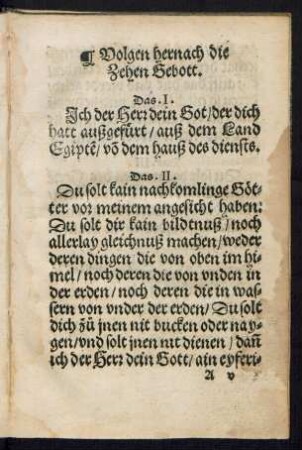 ¶ Volgen hernach die
Zehen Gebott.
Das. I.
Ich der Herꝛ dein Got/der dich
hatt außgefürt/auß dem Land
Egiptẽ/võ dem hauß des diensts.
Das. II.
Du solt kain nachkomlinge Göt-
ter voꝛ meinem angesicht haben:
Du solt dir kain bildtnuß/noch
allerlay gleichnuß machen/weder
deren dingen die von oben im hi-
mel/noch deren die von vnden in
der erden/noch deren die in was-
sern von vnder der erden/Du solt
dich zů jnen nit bucken oder nay-
gen/vnd solt jnen nit dienen/dañ
ich der Herꝛ dein Gott/ain eyferi-
A v